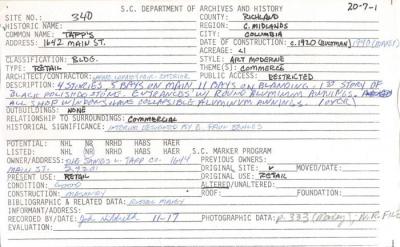 S.C. DEPARTMENT OF ARCHIVES AND HISTORY 20-7-1
SITE NO: 340 COUNTY: RICHLAND
HISTORIC NAME: REGION: C. MIDLANDS
COMMON NAME: TAPP'S CITY: COLUMBIA
ADDRESS: 1642 MAIN ST. DATE OF CONSTRUCTION: C.1920
ACREAGE: <1
CLASSIFICATION: BLDG. STYLE: ART MODERNE
TYPE: RETAIL THEME(S): COMMERCE
ARCHITECT/CONTRACTOR: PUBLIC ACCESS: RESTRICTED
DESCRIPTION: 4 STORIES, 5 BAYS ON MAIN, 11 BAYS ON BLANDING. 1ST STORY OF
BLACK POLISHED STONE. ENTRANCES W/ ROUND ALUMINUM AWNINGS.
ALL SHOP WINDOWS HAVE COLLAPSIBLE ALUMINUM AWNINGS. (OVER)
OUTBUILDINGS: NONE
RELATIONSHIP TO SURROUNDINGS: COMMERCIAL
HISTORICAL SIGNIFICANCE: INTERIOR DESIGNED BY
POTENTIAL: NHL NR NRHD HABS HAER S.C. MARKER PROGRAM
LISTED: NHL NR NRHD HABS HAER
OWNER/ADDRESS: THE JAMES L. TAPP CO. 1644 PREVIOUS OWNERS:
MAIN ST. 29201 ORIGINAL SITE: MOVED/DATE:
PRESENT USE: RETAIL ORIGINAL USE: RETAIL
CONDITION: GOOD ALTERED/UNALTERED:
CONSTRUCTION: MASONRY ROOF: FOUNDATION:
BIBLIOGRAPHIC & RELATED DATA: RUSSELL MAXEY
INFORMANT/ADDRESS:
RECORDED BY/DATE: John 11-17 PHOTOGRAPHIC DATA: P. 333 (Maxey), N.R. FILE
EVALUATION: